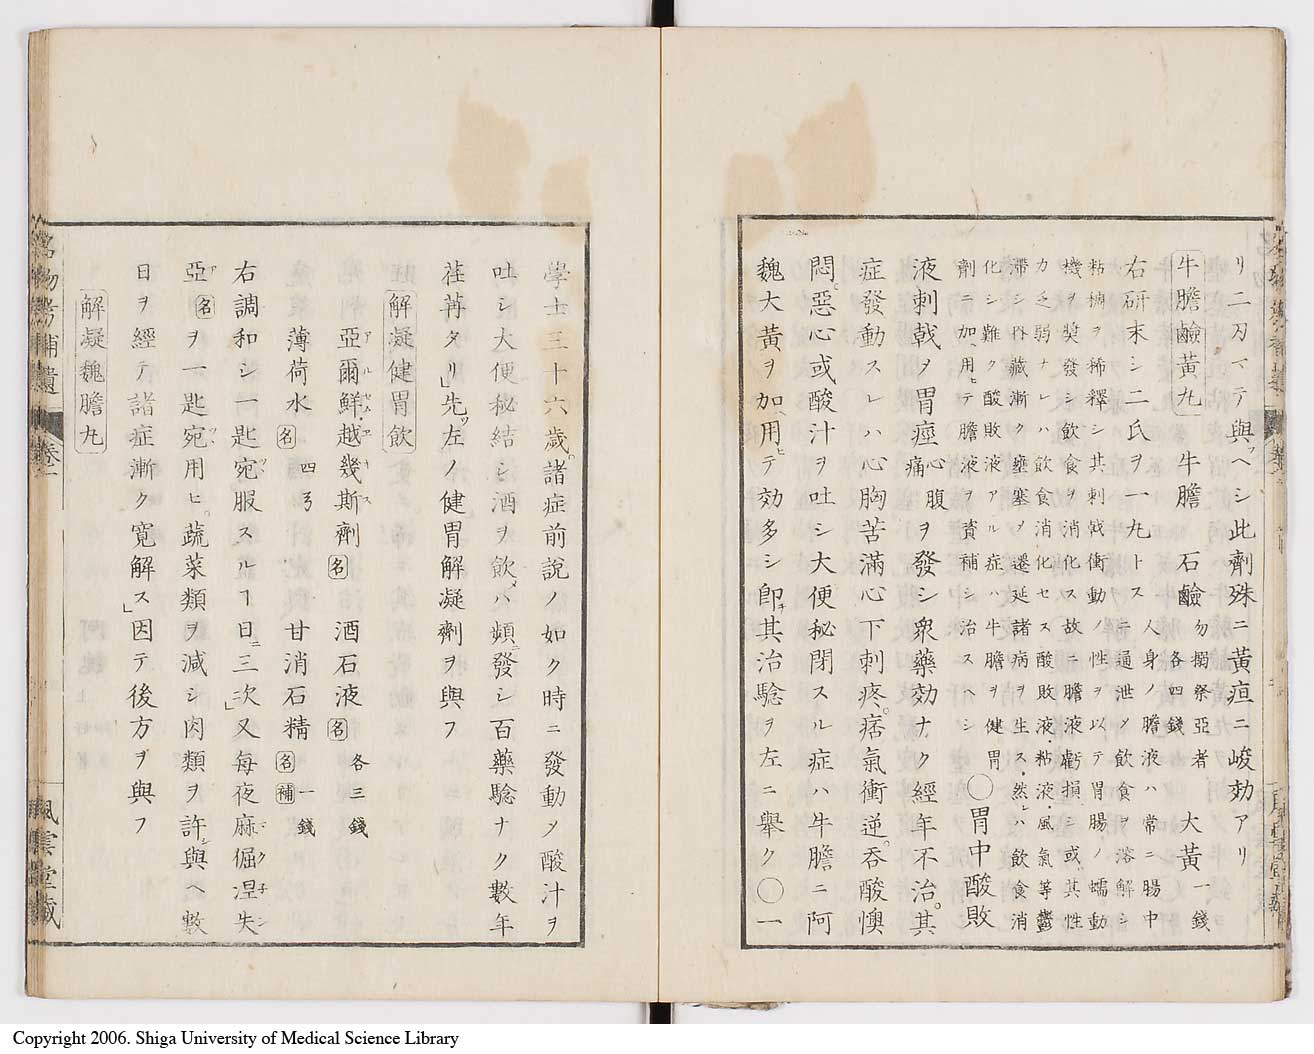 リ二刀マテ與ヘシ此劑殊ニ黄疸ニ峻効アリ
牛膽鹼黄丸 牛膽 石鹼 勿搦祭亞者 各四錢 大黄 一錢
右研末シ二氏ヲ一丸トス
人身ノ膽液ハ常ニ腸中
ニ通泄メ飲食ヲ溶解シ
粘稠ヲ稀釋シ其刺戟衝動ノ性ヲ以テ胃腸ノ蠕動
機ヲ奬發シ飲食ヲ消化ス故ニ膽液虧損シ或其性
力乏弱ナレハ飲食消化セス酸敗液粘液風氣等鬱
滯シ内藏漸ク壅塞メ遷延諸病ヲ生ス然レハ飲食消
化シ難ク酸敗液アル症ハ牛膽ヲ健胃
劑ニ加用ヒテ膽液ヲ賛補シ治スヘシ
〇胃中酸敗
液刺戟ヲ胃痙心腹痛ヲ發シ衆藥効ナク經年不治其
症發動スレハ心胸苦滿心下刺疼痞氣衝逆吞酸懊
悶惡心或酸汁ヲ吐シ大便秘閉スル症ハ牛膽ニ阿
魏大黄ヲ加用ヒテ効多シ即チ其治驗ヲ左ニ舉ク〇一
學士三十六歳諸症前說ノ如ク時ニ發動メ酸汁ヲ
吐シ大便秘結シ酒ヲ飲メハ頻ニ發シ百藥驗ナク數年
荏苒タリ」先ツ左ノ健胃解凝劑ヲ與フ
解凝健胃飲
亞爾鮮越幾斯劑 名 酒石液 名 各三錢
薄荷水 名 四弓 甘消石精 名補 一錢
右調和シ一匙宛服スルヿ日ニ三次」又毎夜麻倔涅失
亞 名 ヲ一匙宛用ヒ蔬菜類ヲ減シ肉類ヲ許シ與ヘ數
日ヲ經テ諸症漸ク寛解ス」因テ後方ヲ與フ
解凝魏膽丸
名物考補遺 卷二
風雲堂藏
Copyright 2006. Shiga University of Medical Science Library